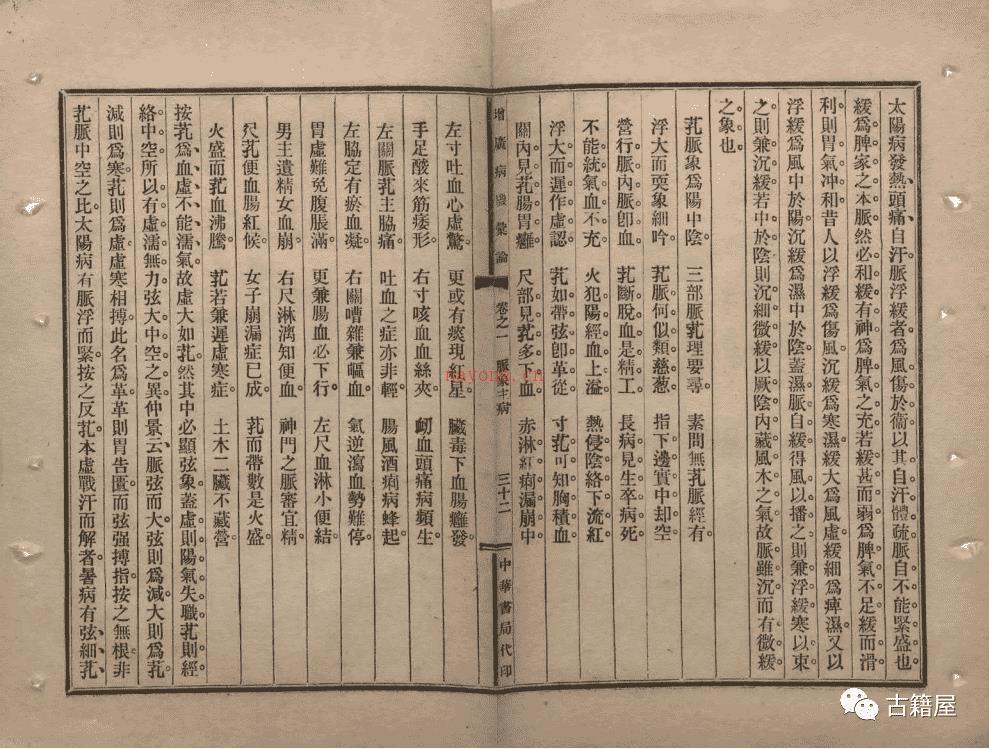 太陽病發熱頭痛自汗脈浮緩者爲風傷於衞以其自汗體疏脈自不能緊盛也
緩爲脾家之本脈然必和緩有神爲脾氣之充若緩甚而弱爲脾氣不足緩而滑
利則胃氣冲和昔人以浮緩爲傷風沉緩爲寒濕緩大爲風虛緩細爲痺濕又以
浮緩爲風中於陽沉緩爲濕中於陰蓋濕脈自緩得風以播之則兼浮緩寒以束
之則兼沉緩若中於陰則沉細微緩以厥陰內藏風木之氣故脈雖沉而有微緩
之象也
芤脈象爲陽中陰 三部脈芤理要尋 素問無芤脈經有
浮大而耎象細吟 芤脈何似類慈葱 指下邊實中却空
營行脈內脈卽血 芤斷脫血是精工 長病見生卒病死
不能統氣血不充 火犯陽經血上溢 熱侵陰絡下流紅
浮大而遲作虛認 芤如帶弦卽革從 寸芤可知胸積血
關內見芤腸胃癰 尺部見芤多下血 赤淋紅痢漏崩中
增廣病機彙論 卷之一 脈 主病 三十二 中華書局代印
左寸吐血心虛驚 更或有痰現紅星 臟毒下血腸癰發
手足酸來筋痿形 右寸咳血血絲夾 衂血頭痛病頻生
左關脈芤主脇痛 吐血之症亦非輕 腸風酒痢病蜂起
左脇定有瘀血凝 右關嘈雜兼嘔血 氣逆瀉血勢難停
胃虛難免腹脹滿 更兼腸血必下行 左尺血淋小便結
男主遺精女血崩 右尺淋漓知便血 神門之脈審宜精
尺芤便血腸紅候 女子崩漏症已成 芤而帶數是火盛
火盛而芤血沸騰 芤若兼遲虛寒症 土木二臟不藏營
按芤爲血虛不能濡氣故虛大如芤然其中必顯弦象蓋虛則陽氣失職芤則經
絡中空所以有虛濡無力弦大中空之異仲景云脈弦而大弦則爲減大則爲芤
減則爲寒芤則爲虛虛寒相搏此名爲革革則胃告匱而弦强搏指按之無根非
芤脈中空之比太陽病有脈浮而緊按之反芤本虛戰汗而解者暑病有弦細芤
nayona.cn
古籍屋